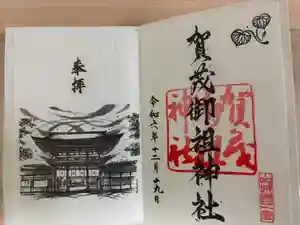 賀茂御祖神社
賀茂
神社
令和六年十二月十九日
奉拝